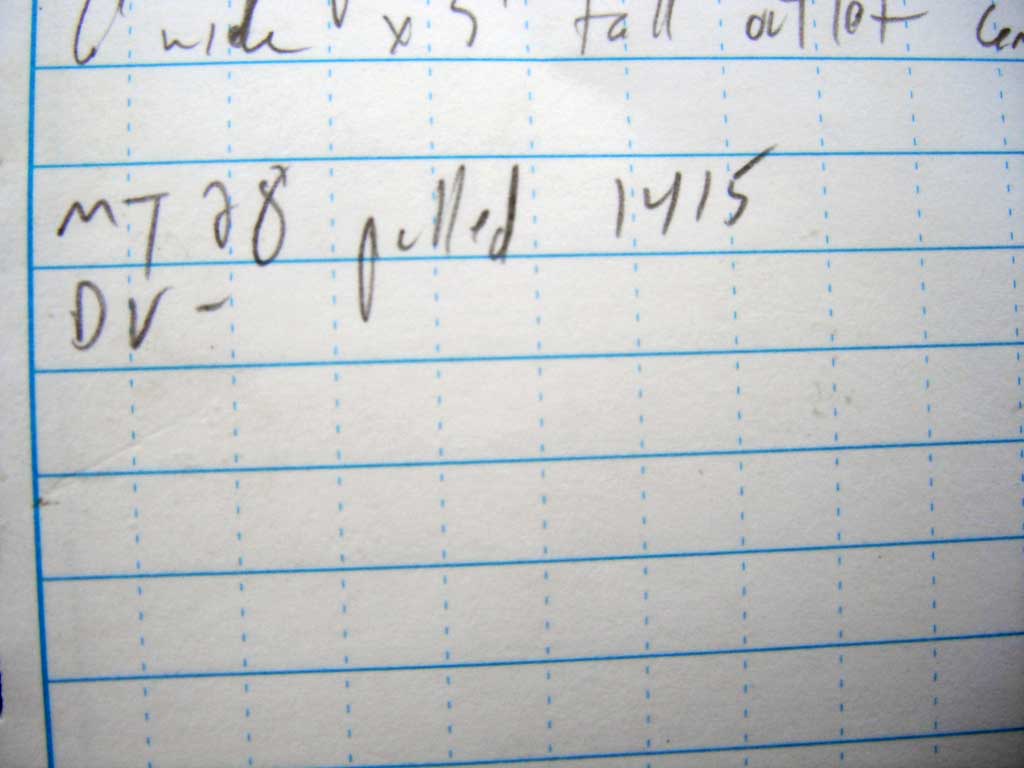 6' wide x 5' tall outlet
MT 28 pulled 1415
DV -